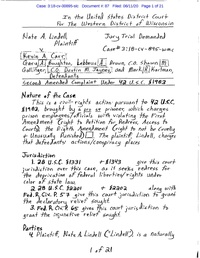 Case: 3:18-cv-00895-slc Document #: 87 Filed: 06/11/20 Page 1 of 21
In the United States District Court
For The Western District of Wisconsin
Nate A. Lindell,
Plaintiff
v.
Jury Trial Demanded
Case # 3:18-cv-895-wmc
Kevin A. Carr,
Gary Boughton, Lebbeus Brown, C.O. Shawn
Gallinger, C.O. Dustin and Mark Kartman,
Defendants
Second Amended Complaint Under 42 U.S.C. §1983
Nature of the Case
This is a civil-rights action pursuant to 42 U.S.C.
§1983, brought by a pro se prisoner, which charges
prison employees/officials with violating the First
Amendment (right to Petition for Redress, Access to
Courts), the Eighth Amendment (right to not be Cruelly
or Unusually Punished). The plaintiff, Lindell, charges
that Defendants' actions/conspiracy places
Jurisdiction
1. 28 U.S.C. §1331 + §1343 give this court
jurisdiction over this case, as it seeks redress for
the deprivation of federal liberties/rights under
color of state law.
2. 28 U.S.C. §2201 + §2202 along with
Fed. R. Civ. P. 57 give this court jurisdiction to grant
the declaratory relief sought.
3. Fed. R. Civ. P. 65 gives this court jurisdiction to grant
the injunctive relief sought.
Parties
4. Plaintiff, Nate A. Lindell ("Lindell") is a naturally
1 of 21